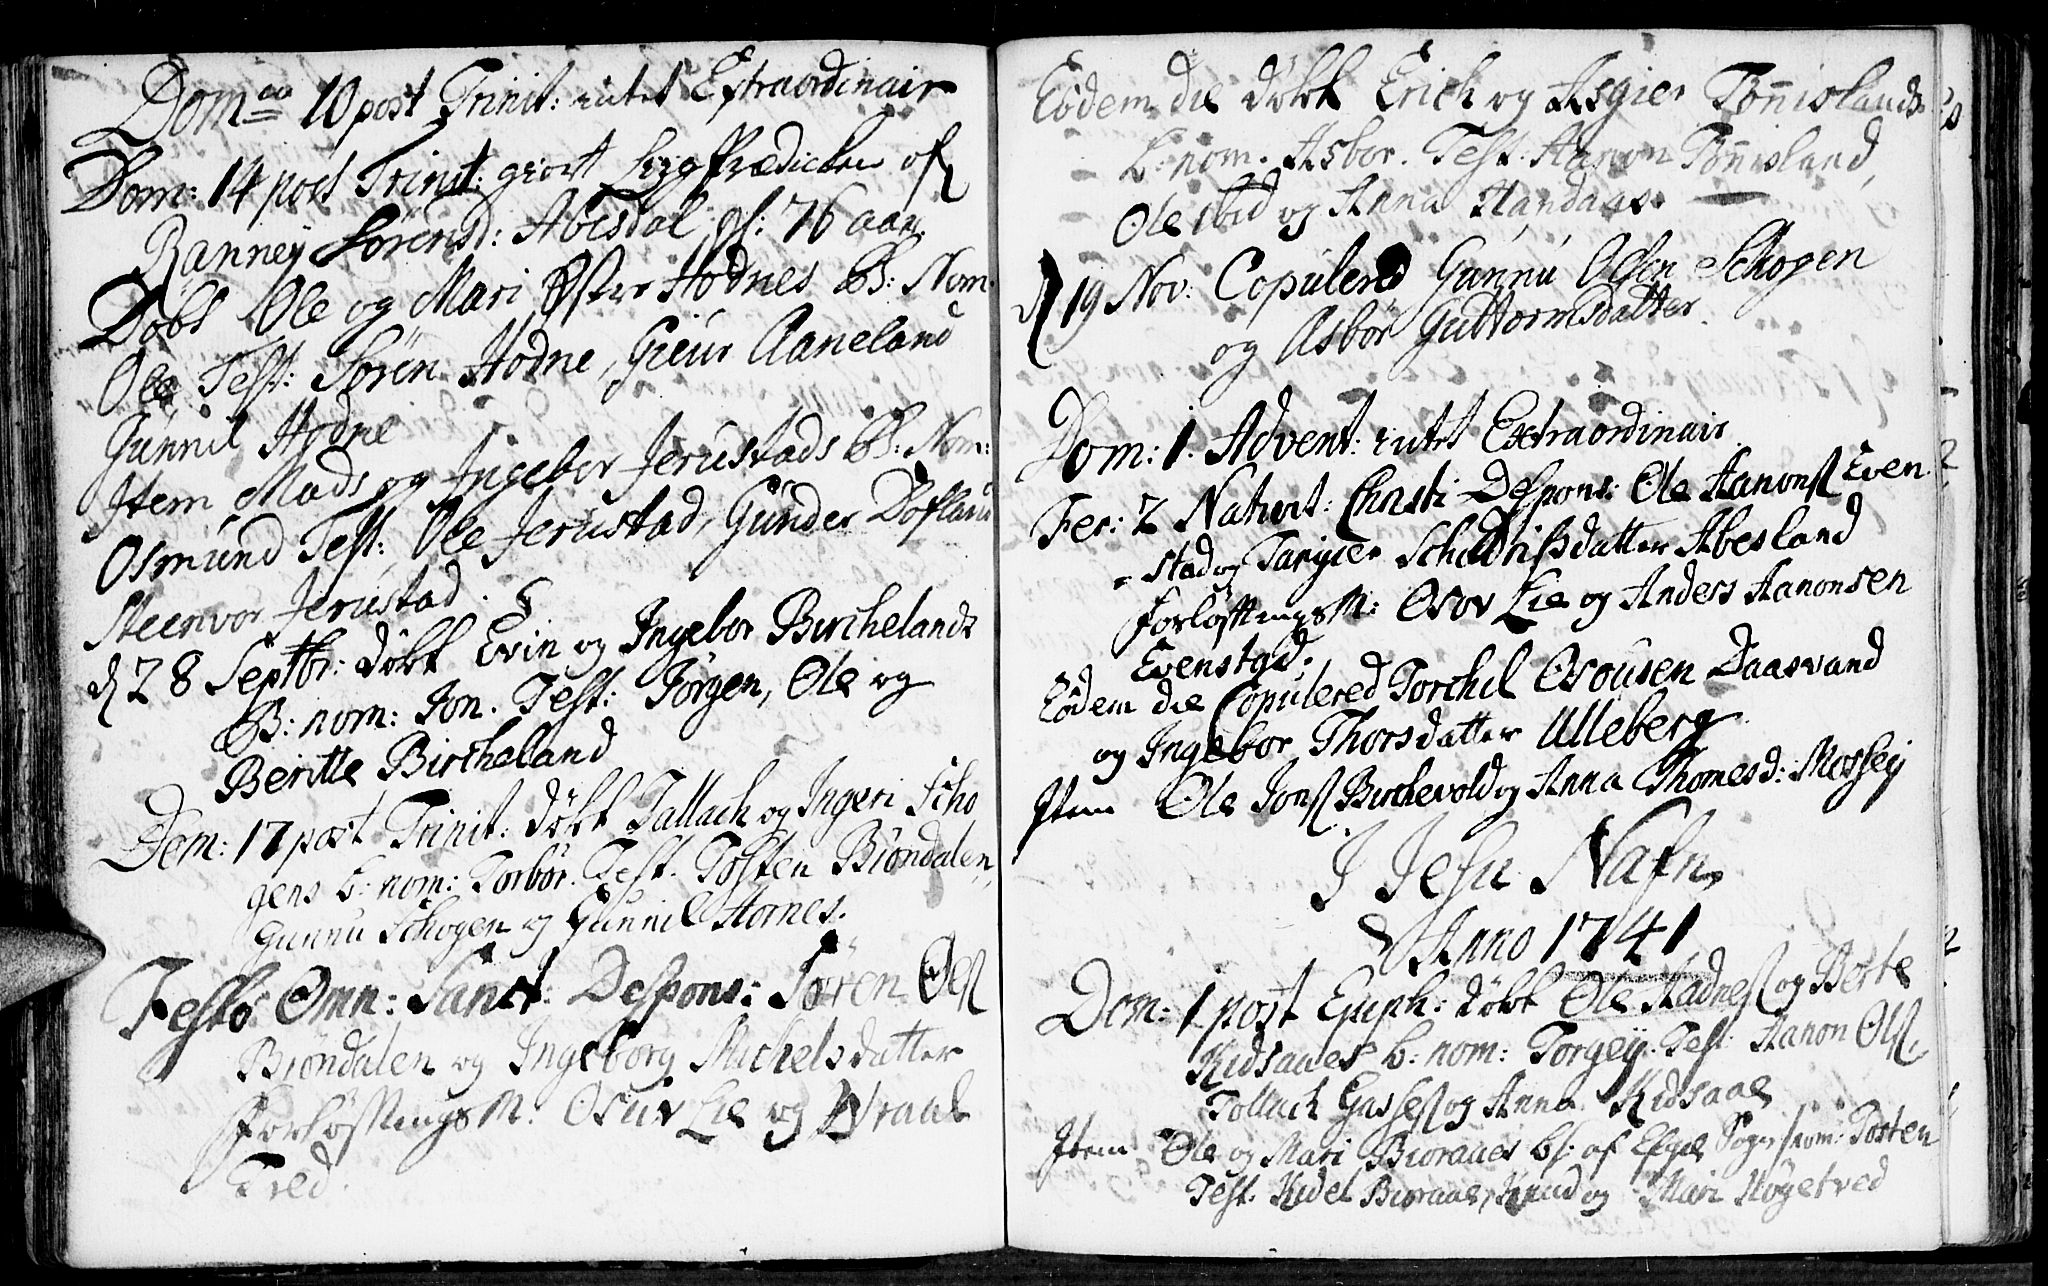 Dom=aa 10 post Trinit: intet Extraordinair
Dom: 14 post Trinit: giort Liigprædicken af
Ranney Sørensd: Abesdal gl: 76 aar.
Døbt Ole og Mari Østre Hodnes B: Nom.
Ole Test: Søren Hodne, Gieur Aaneland
Gunnil Hodne
Item Mads og Ingebor Jerustads B: Nom:
Osmund Test: Ole Jerustad, Gunder Dofland
Steenvor Jerustad.
d 28 Septbr: døbt Evin og Ingebor Birchelands
B: nom: Jon. Test: Jørgen, Ole og
Beritte Bircheland
Dom: 17 post Trinit: døbt Tallach og Ingeri Scho
gens b: nom: Torbor. Test. Tosten Biøndalen,
Gunnu Schogen og Gunnil Hornes.
Festo Omn: Sanct: Despons: Søren Ols
Biøndalen og Ingeborg Michelsdatter
Forløftnings M. Osuv Lie og Wraal
Tred.
Eodem die døbt Erich og Asgier Tønislands
b: nom. Asbor. Test. Aanon Tønisland,
Ole ibid og Anna Handaas.
d 19 Nov: Copulered Gunnu Olsen Schogen
og Asbor Guttormsdatter.
Dom: 1. Advent: intet Extraordinair.
Fer: 2 Nativit: Christi Despons: Ole Aanons Even
= stad og Targier Scheldrissdatter Abesland
forløftnings M: Osov Lie og Anders Aanonsen
Evenstad.
Eodem die Copulered Torchel Osousen Daasvand
og Ingebor Thorsdatter Ulleberg
Item Ole Jons Birchevold og Anna Thomesd: Mossey
I Jesu Nafn
Anno 1741
Dom: 1 post Epiph: døbt Ole Aadnes og Berte
Kidsaaes b: nom: Torgey. Test: Aanon Ols,
Tollach Gasses og Anna Kidsaae
Item Ole og Mari Bioraaes b: af Sogn nom: Tosten
Test. Kidel Bioraae, Knud og Mari Høgetved